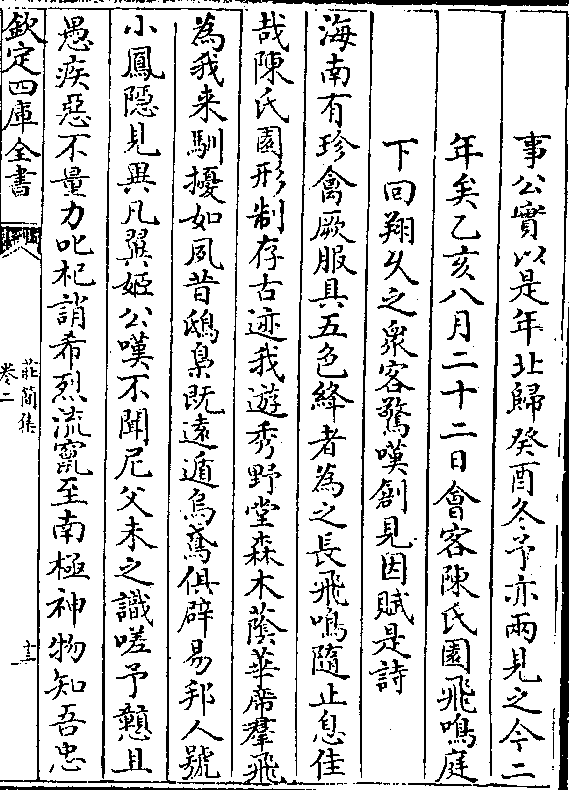 事公實以是年北歸癸酉冬予亦兩見之今二
年矣乙亥八月二十二日會客陳氏園飛鳴庭
下回翔久之衆客驚嘆創見因賦是詩
海南有珍禽厥服具五色絳者為之長飛鳴隨止息佳
哉陳氏園形制存古迹我遊秀野堂森木蔭華席羣飛
為我来馴擾如夙昔鴟梟既遠遁烏鳶俱辟易邦人號
小鳳隠見異凡翼姬公嘆不聞尼父未之識嗟予戅且
愚疾惡不量力叱杞誚希烈流竄至南極神物知吾忠
欽定四庫全書
莊簡集
卷二
十三